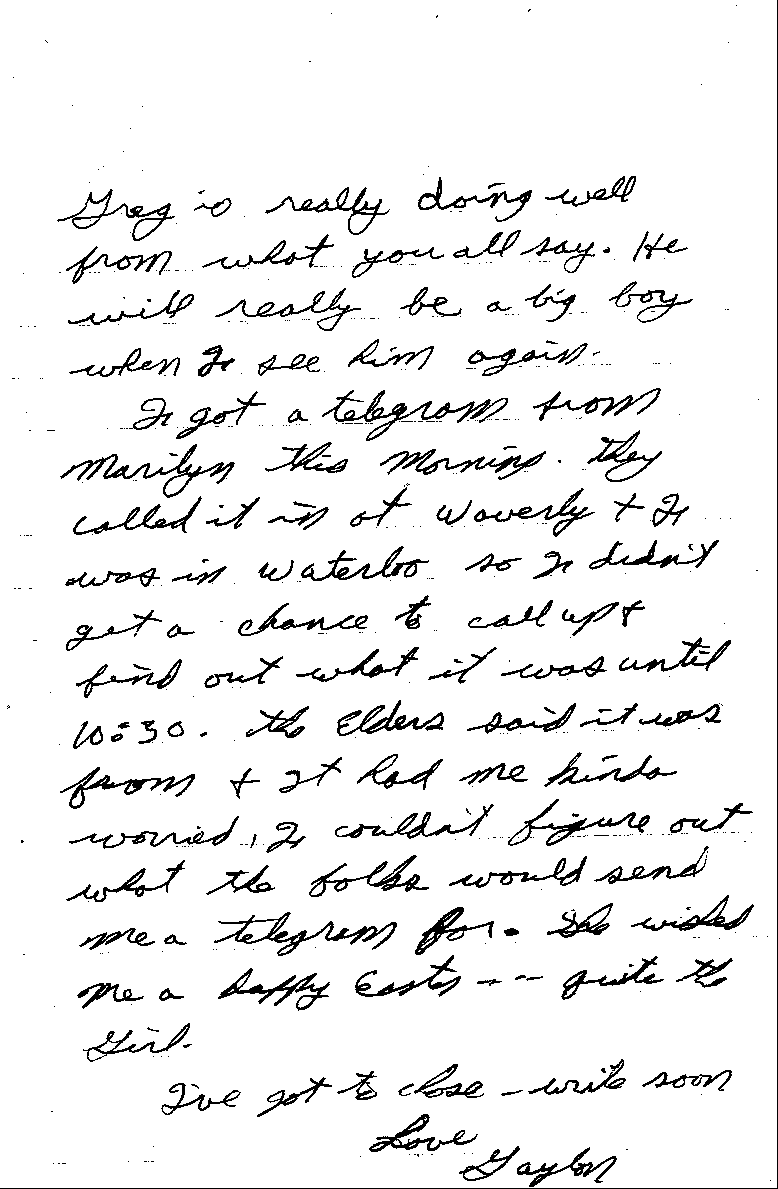 Greg is really doing well
from what you all say. He
will really be a big boy
when I see him again.
I got a telegram from
Marilyn this morning. They
called it in at Waverly + I
was in Waterloo so I didn't
get a chance to call up +
find out what it was until
10:30. The Elders said it was
from + It had me kinda
worried, I couldn't figure out
what the folks would send
me a telegram for. She wished
me a happy Easter -- quite the
Girl.
I've got to close - write soon
Love
Gaylon